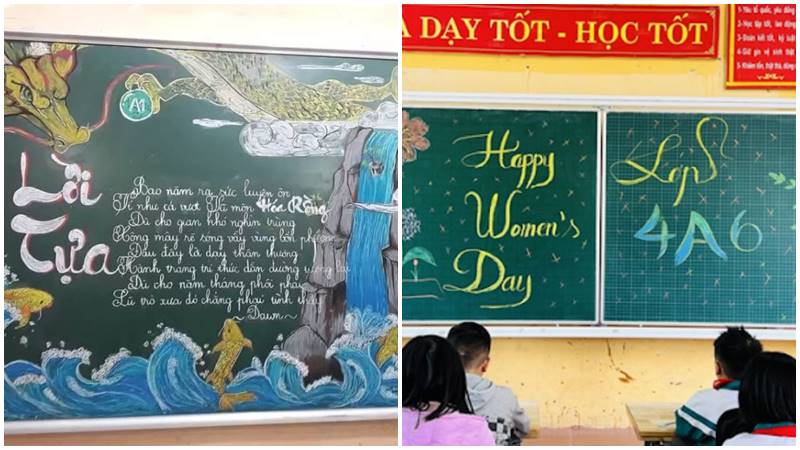 A1
Lời
Tựa
Bao năm ra sức luyện ôn
Thi như cá vượt Vũ môn Hóa Rồng
Dù cho gian khó nghìn trùng
Rồng mây rẽ sóng vẫy vùng bốn phương
Đâu đây là dạy thân thương
Hành trang tri thức dẫn đường tương lai
Dù cho năm tháng phôi phai
Lũ trò xưa đó chẳng phai tình thầy
~Dawn~
A DẠY TỐT - HỌC TỐT
1-Yêu tổ quốc, yêu đồng
2-Học tập tốt, lao động
3-Đoàn kết tốt, kỷ luật
4-Giữ gìn vệ sinh thật
5-Khiêm tốn, thật thà, dũng
Happy
Women's
Day
Lớp
4A6